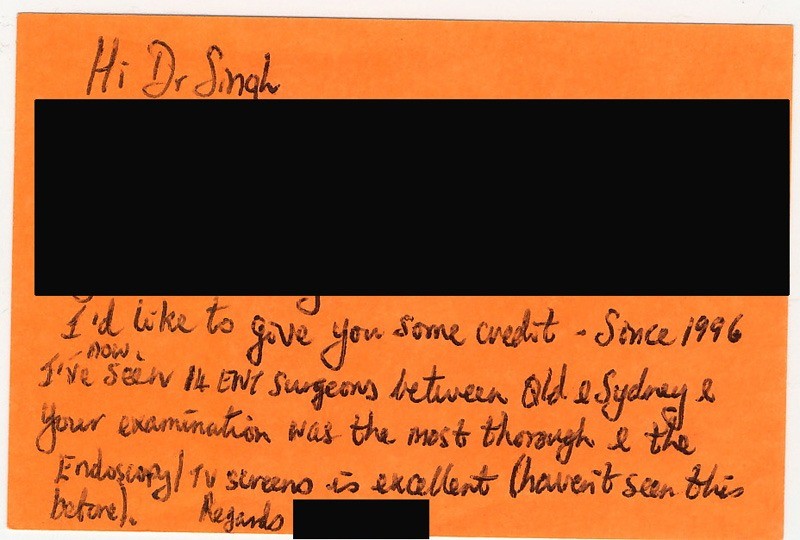 Hi Dr Singh
I'd like to give you some credit - Since 1996
now.
I've seen 14 ENT surgeons between Qld & Sydney &
your examination was the most thorough & the
Endoscopy/TV screens is excellent (haven't seen this
before). Regards